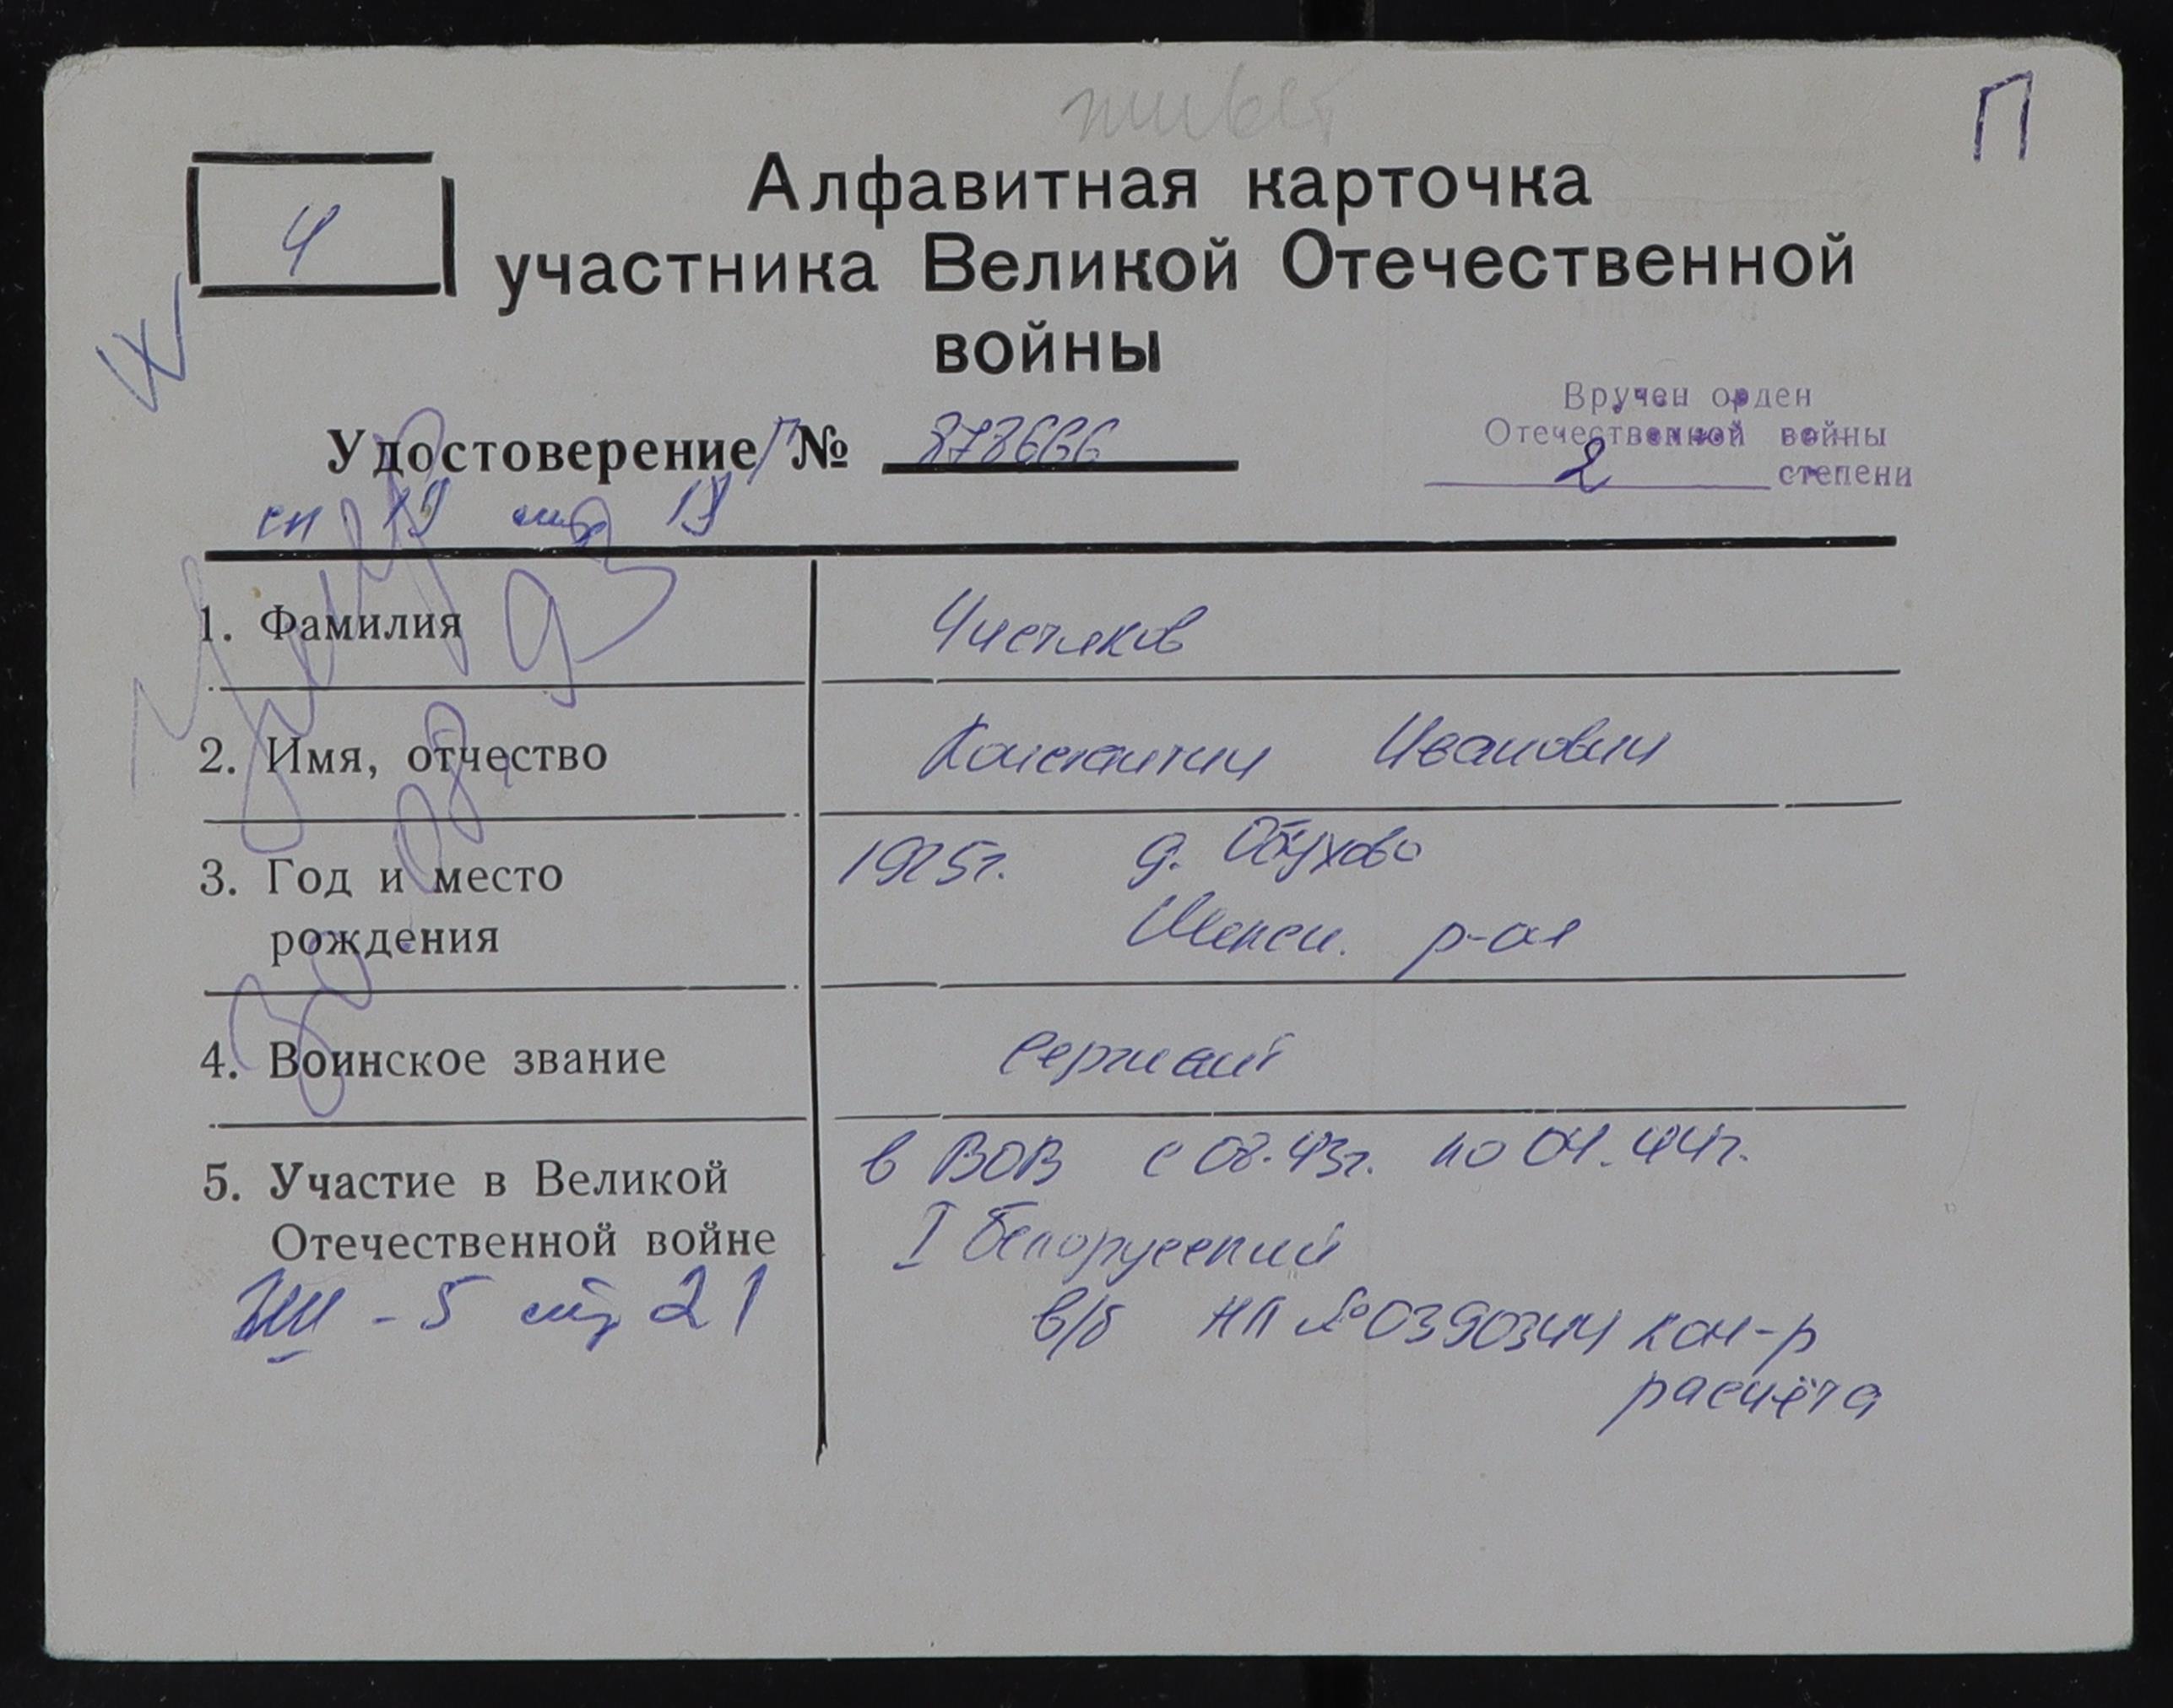 П
Ч
Алфавитная карточка
участника Великой Отечественной
войны
Вручен орден
Отечественной войны
2 степени
Удостоверение П № 878666
сп 19 стр 17
1. Фамилия
Чистяков
2. Имя, отчество
Константин Иванович
3. Год и место
рождения
1925г. д. Обухово
Шексн. р-он
4. Воинское звание
сержант
5. Участие в Великой
Отечественной войне
в ВОВ с 08.43г. по 04.44г.
I Белорусский
в/б НП №0390344 ком-р
расчёта
- 5 стр 21